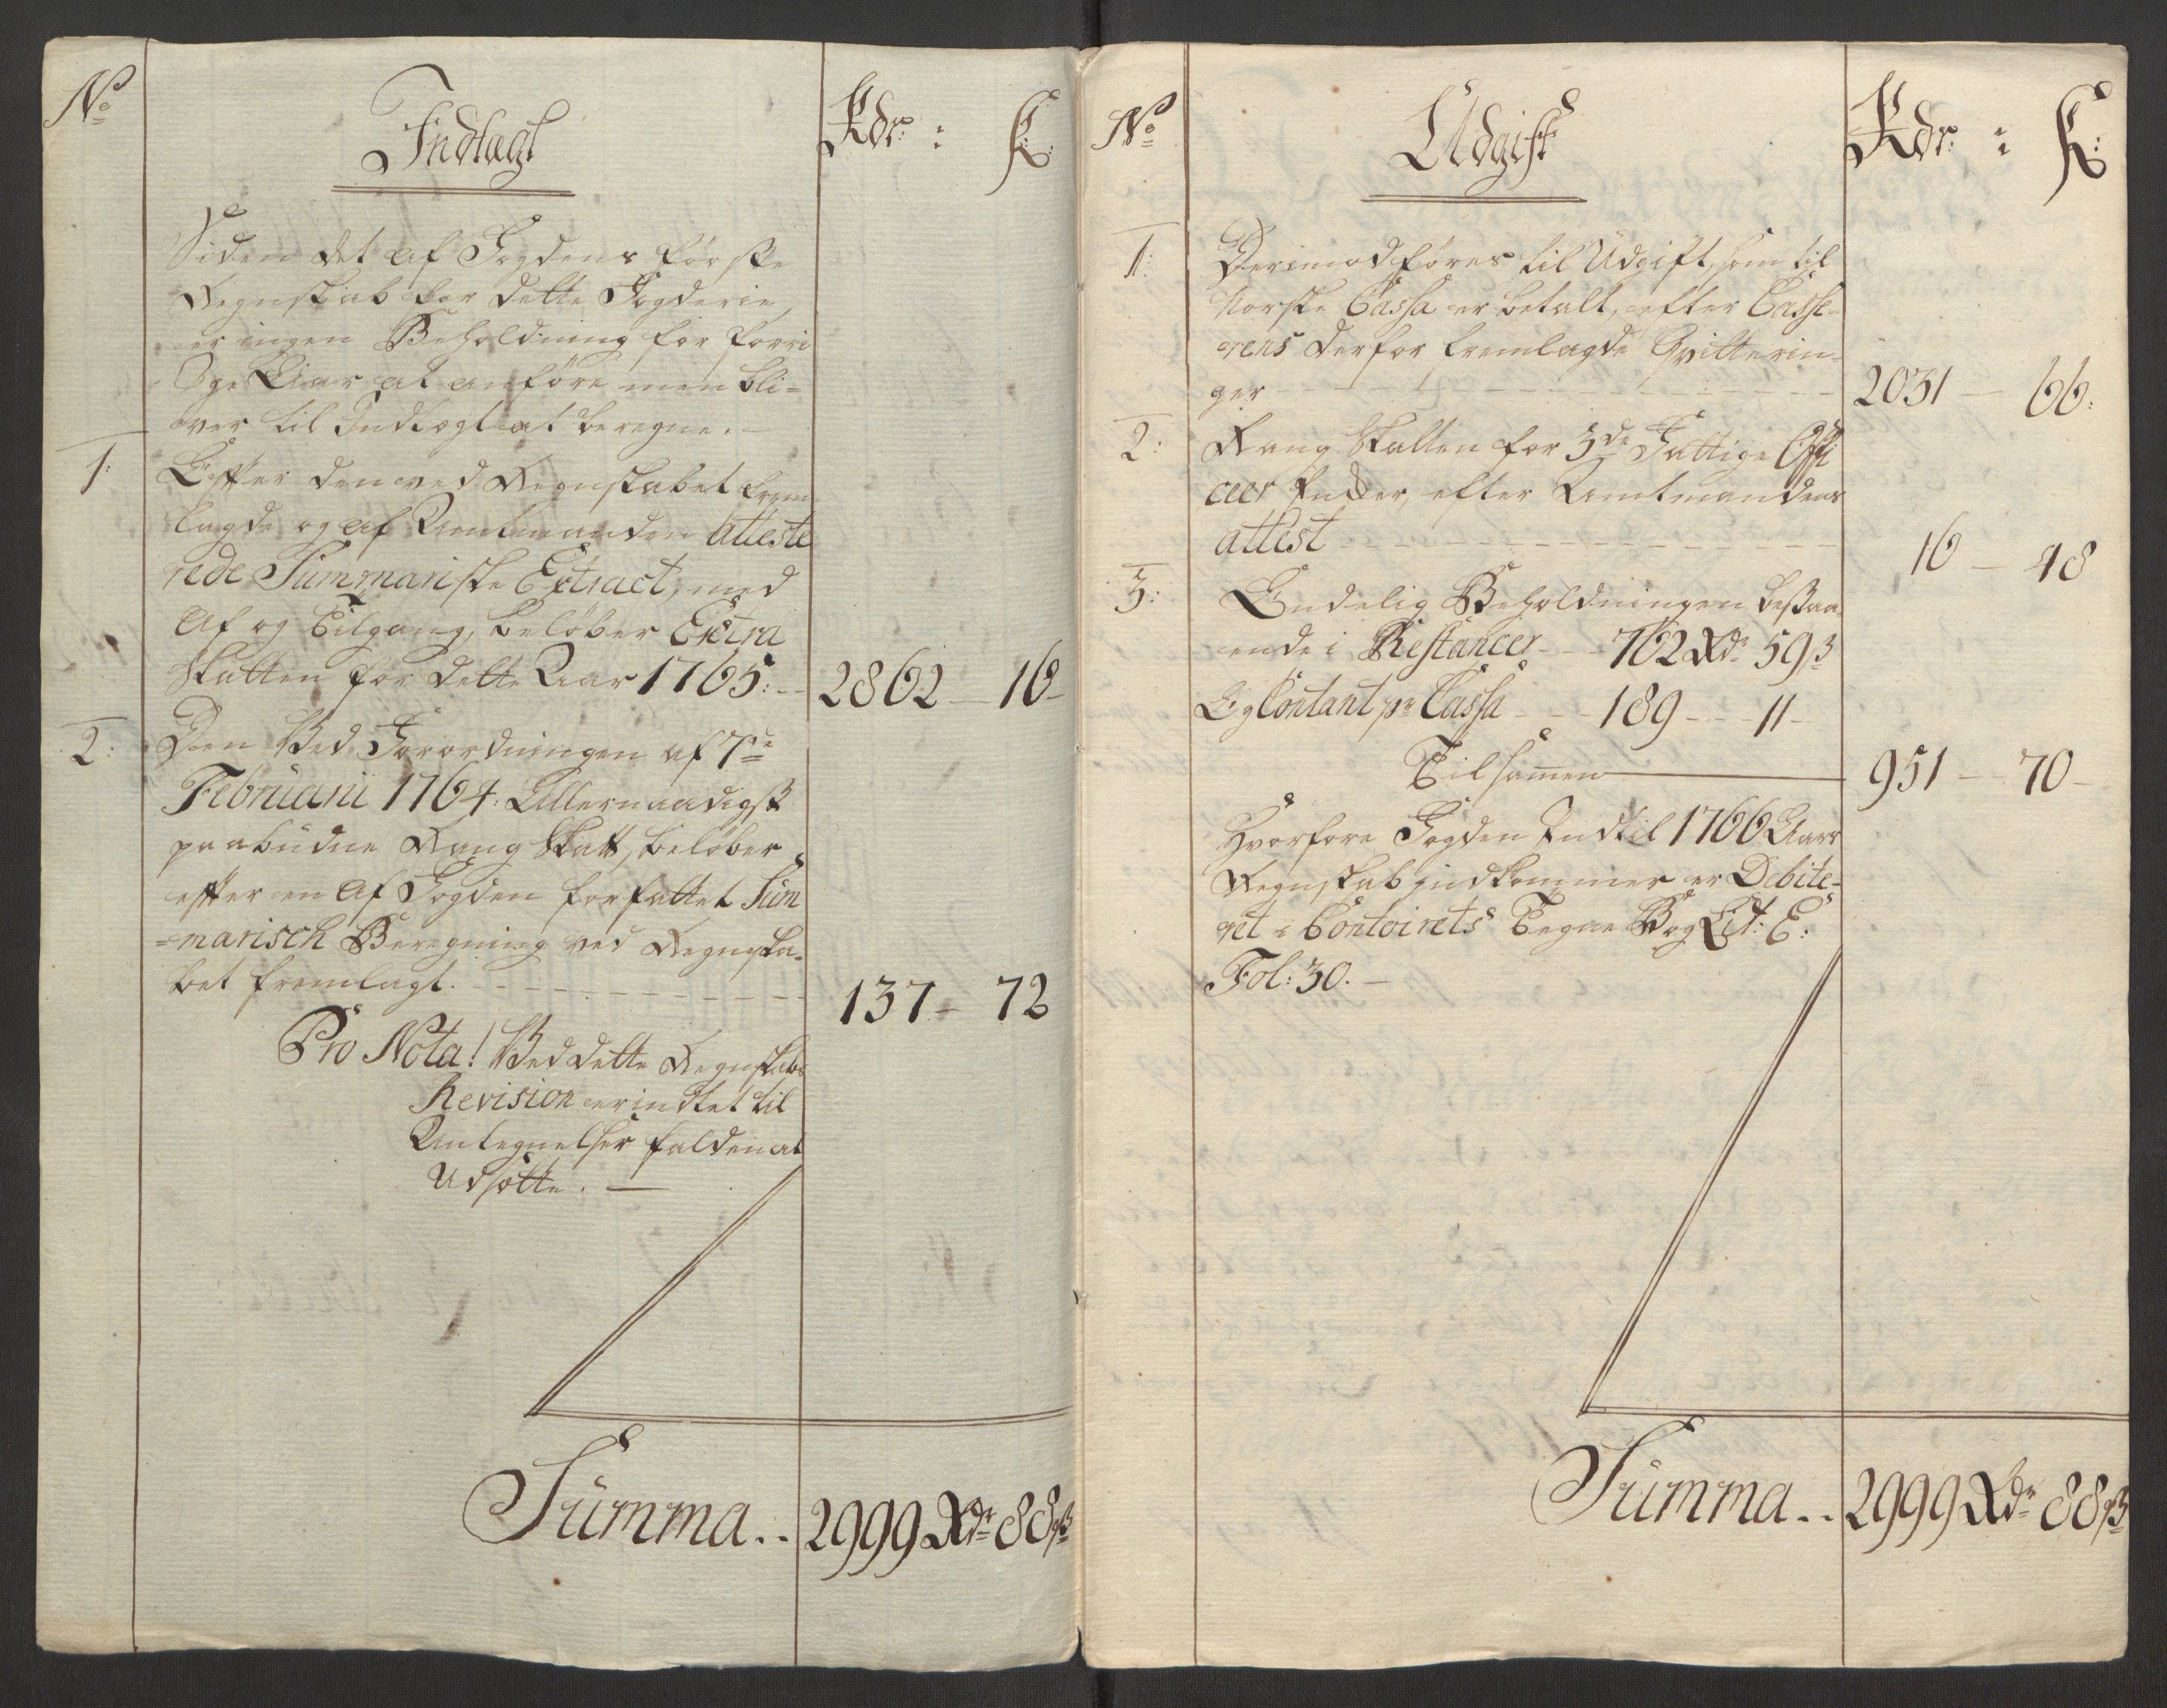 No
Indtægt
Rdr: ß:
Siden det af Fogdens første
Regnskab for dette Fogderie,
er ingen Beholdning for forri
ge Aar at anføre men bli=
ver til Indtægt at beregne.-
1: Efter den ved Regnskabet frem
lagde og af Amtmanden atteste
rede Summariske Extract, med
Af og Tilgang, beløber Extra
Skatten for dette Aar 1765:-- 2862 - 16-
2: Den Ved Forordningen af 7de
Februarii 1764. Allernaadigst
paabudne Rang Skatt, beløber
efter en af Fogden forfattet Sum
=marisch Beregning ved Regnska-
bet fremlagt. - - - 137 - 72
Pro Nota! Ved dette Regnskabs
Revision er indtet til
Antegnelser falden at
Udsætte. —
Summa.. 2999 Rdr 88 ß
No
Udgift
Rdr: ß:
1: Derimod føres til Udgift, som til
Norske Cassa er betalt, efter Casse-
rens derfor fremlagde Qvitterin-
ger - - - 2031 - 66:
2: Rang Skatten for 3de Fattige Offi
ceer Enker, efter Amtmandens
attest - - - 16 - 48
3: Endelig Beholdningen bestaa
ende i Restancer - - 762 Rdr 59 ß
Og Contant pr Cassa - - 189 - - 11 -
Tilsamen — 951 - 70 -
Hvorfore Fogden Indtil 1766 Aars
Regnskab indkommer er Debite-
ret i Contoirets Tegne Bog Lit: E:
Fol: 30. -
Summa.. 2999 Rdr 88 ß